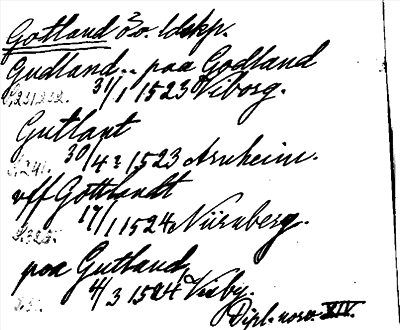 Gotland Ö o. ldskp.
Gudland.. paa Godland
S. 231, 232. 31/1 1523 Viborg.
Gutlant
S. 241. 30/4 ? 1523 Arnheim.
vff Gotthlandt
S. 323. 17/1 1524 Nürnberg.
poa Gutland
4/3 1524 Visby.
Dipl. norv. XIV.